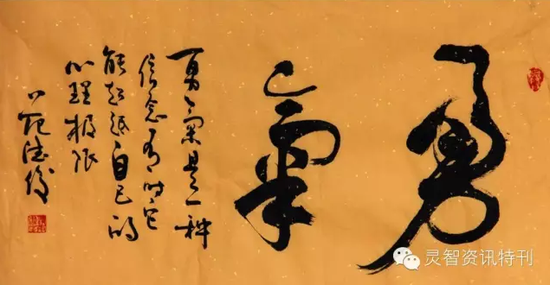 勇氣
勇氣是一种
信念有时它
能超越自己的
心理极限
灵智资讯特刊